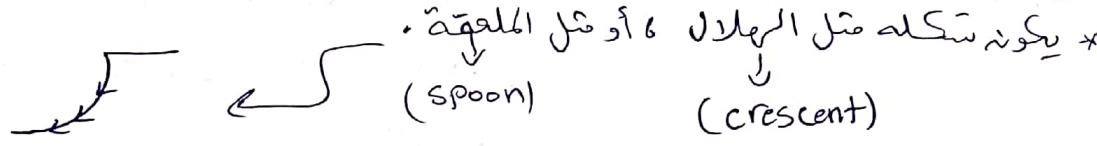 * يكون شكله مثل الهلال ، أو مثل الملعقة .
(crescent) (spoon)